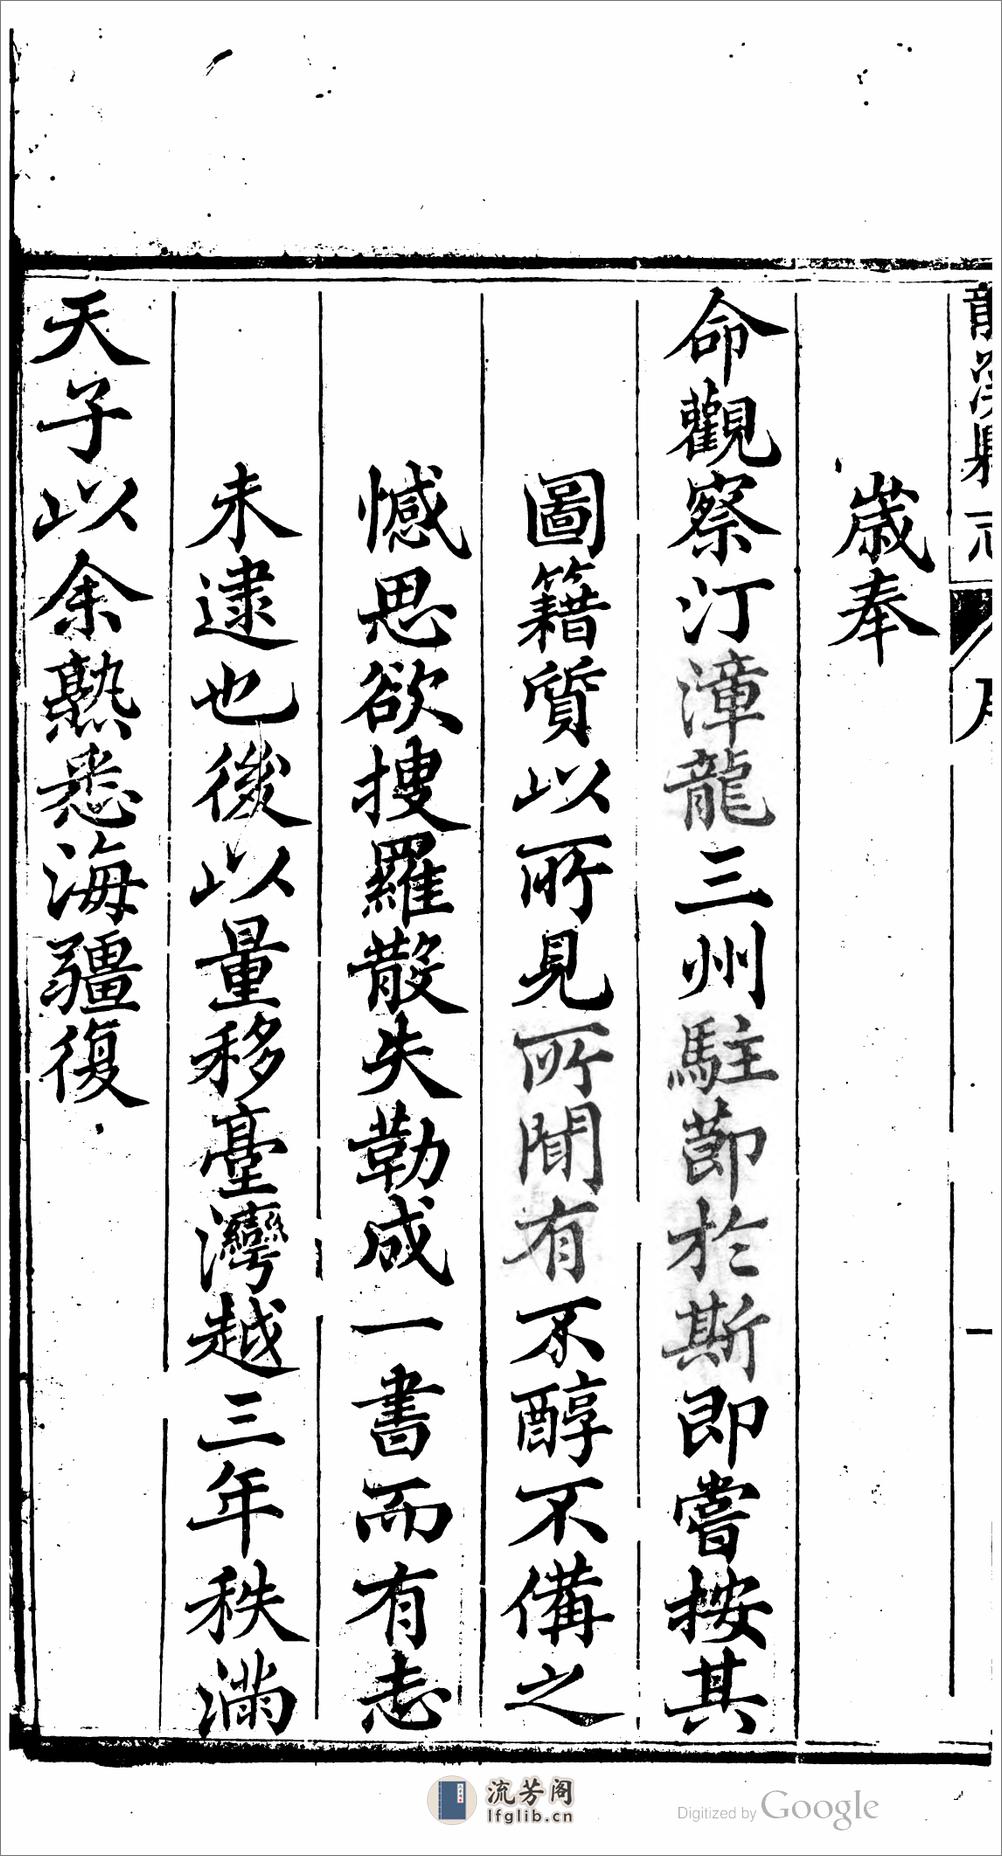 龍溪縣志
序
一
歳奉
命觀察汀漳龍三州駐莭於斯即嘗按其
圖籍質以所見所聞有不醇不備之
憾思欲搜羅散失勒成一書而有志
未逮也後以量移臺灣越三年秩滿
天子以余熟悉海疆復
流芳阁
lfglib.cn
Digitized by Google